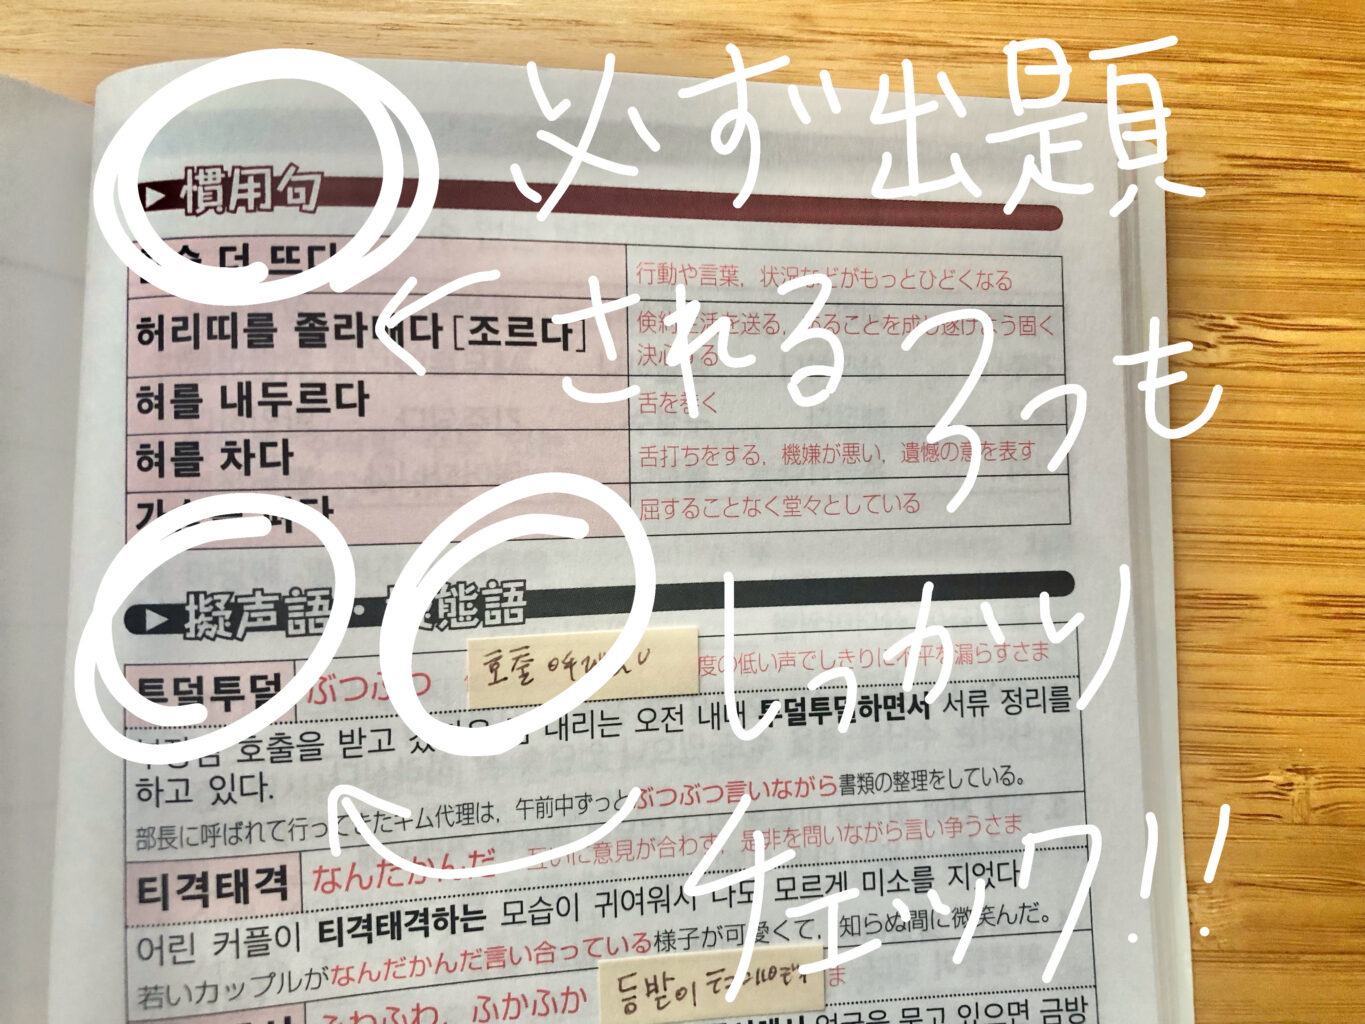 必ず出題
される3つも
しっかり
チェック!!
▶ 慣用句
더 뜨다
行動や言葉,状況などがもっとひどくなる
허리띠를 졸라매다 [조르다]
倹約生活を送る,あることを成し遂げよう固く
決心する
혀를 내두르다
舌を巻く
혀를 차다
舌打ちをする,機嫌が悪い,遺憾の意を表す
屈することなく堂々としている
▶ 擬声語・擬態語
투덜투덜
ぶつぶつ
度の低い声でしきりに不平を漏らすさま
호출
호출을 받고 대리는 오전 내내 투덜투덜하면서 서류 정리를
하고 있다.
部長に呼ばれて行ってきたキム代理は,午前中ずっとぶつぶつ言いながら書類の整理をしている。
티격태격
なんだかんだ
互いに意見が合わず,是非を問いながら言い争うさま
어린 커플이 티격태격하는 모습이 귀여워서 나도 모르게 미소를 지었다
若いカップルがなんだかんだ言い合っている様子が可愛くて,知らぬ間に微笑んだ。
ふわふわ,ふかふか
등받이
ま
얼굴을 묻고 있으면 금방